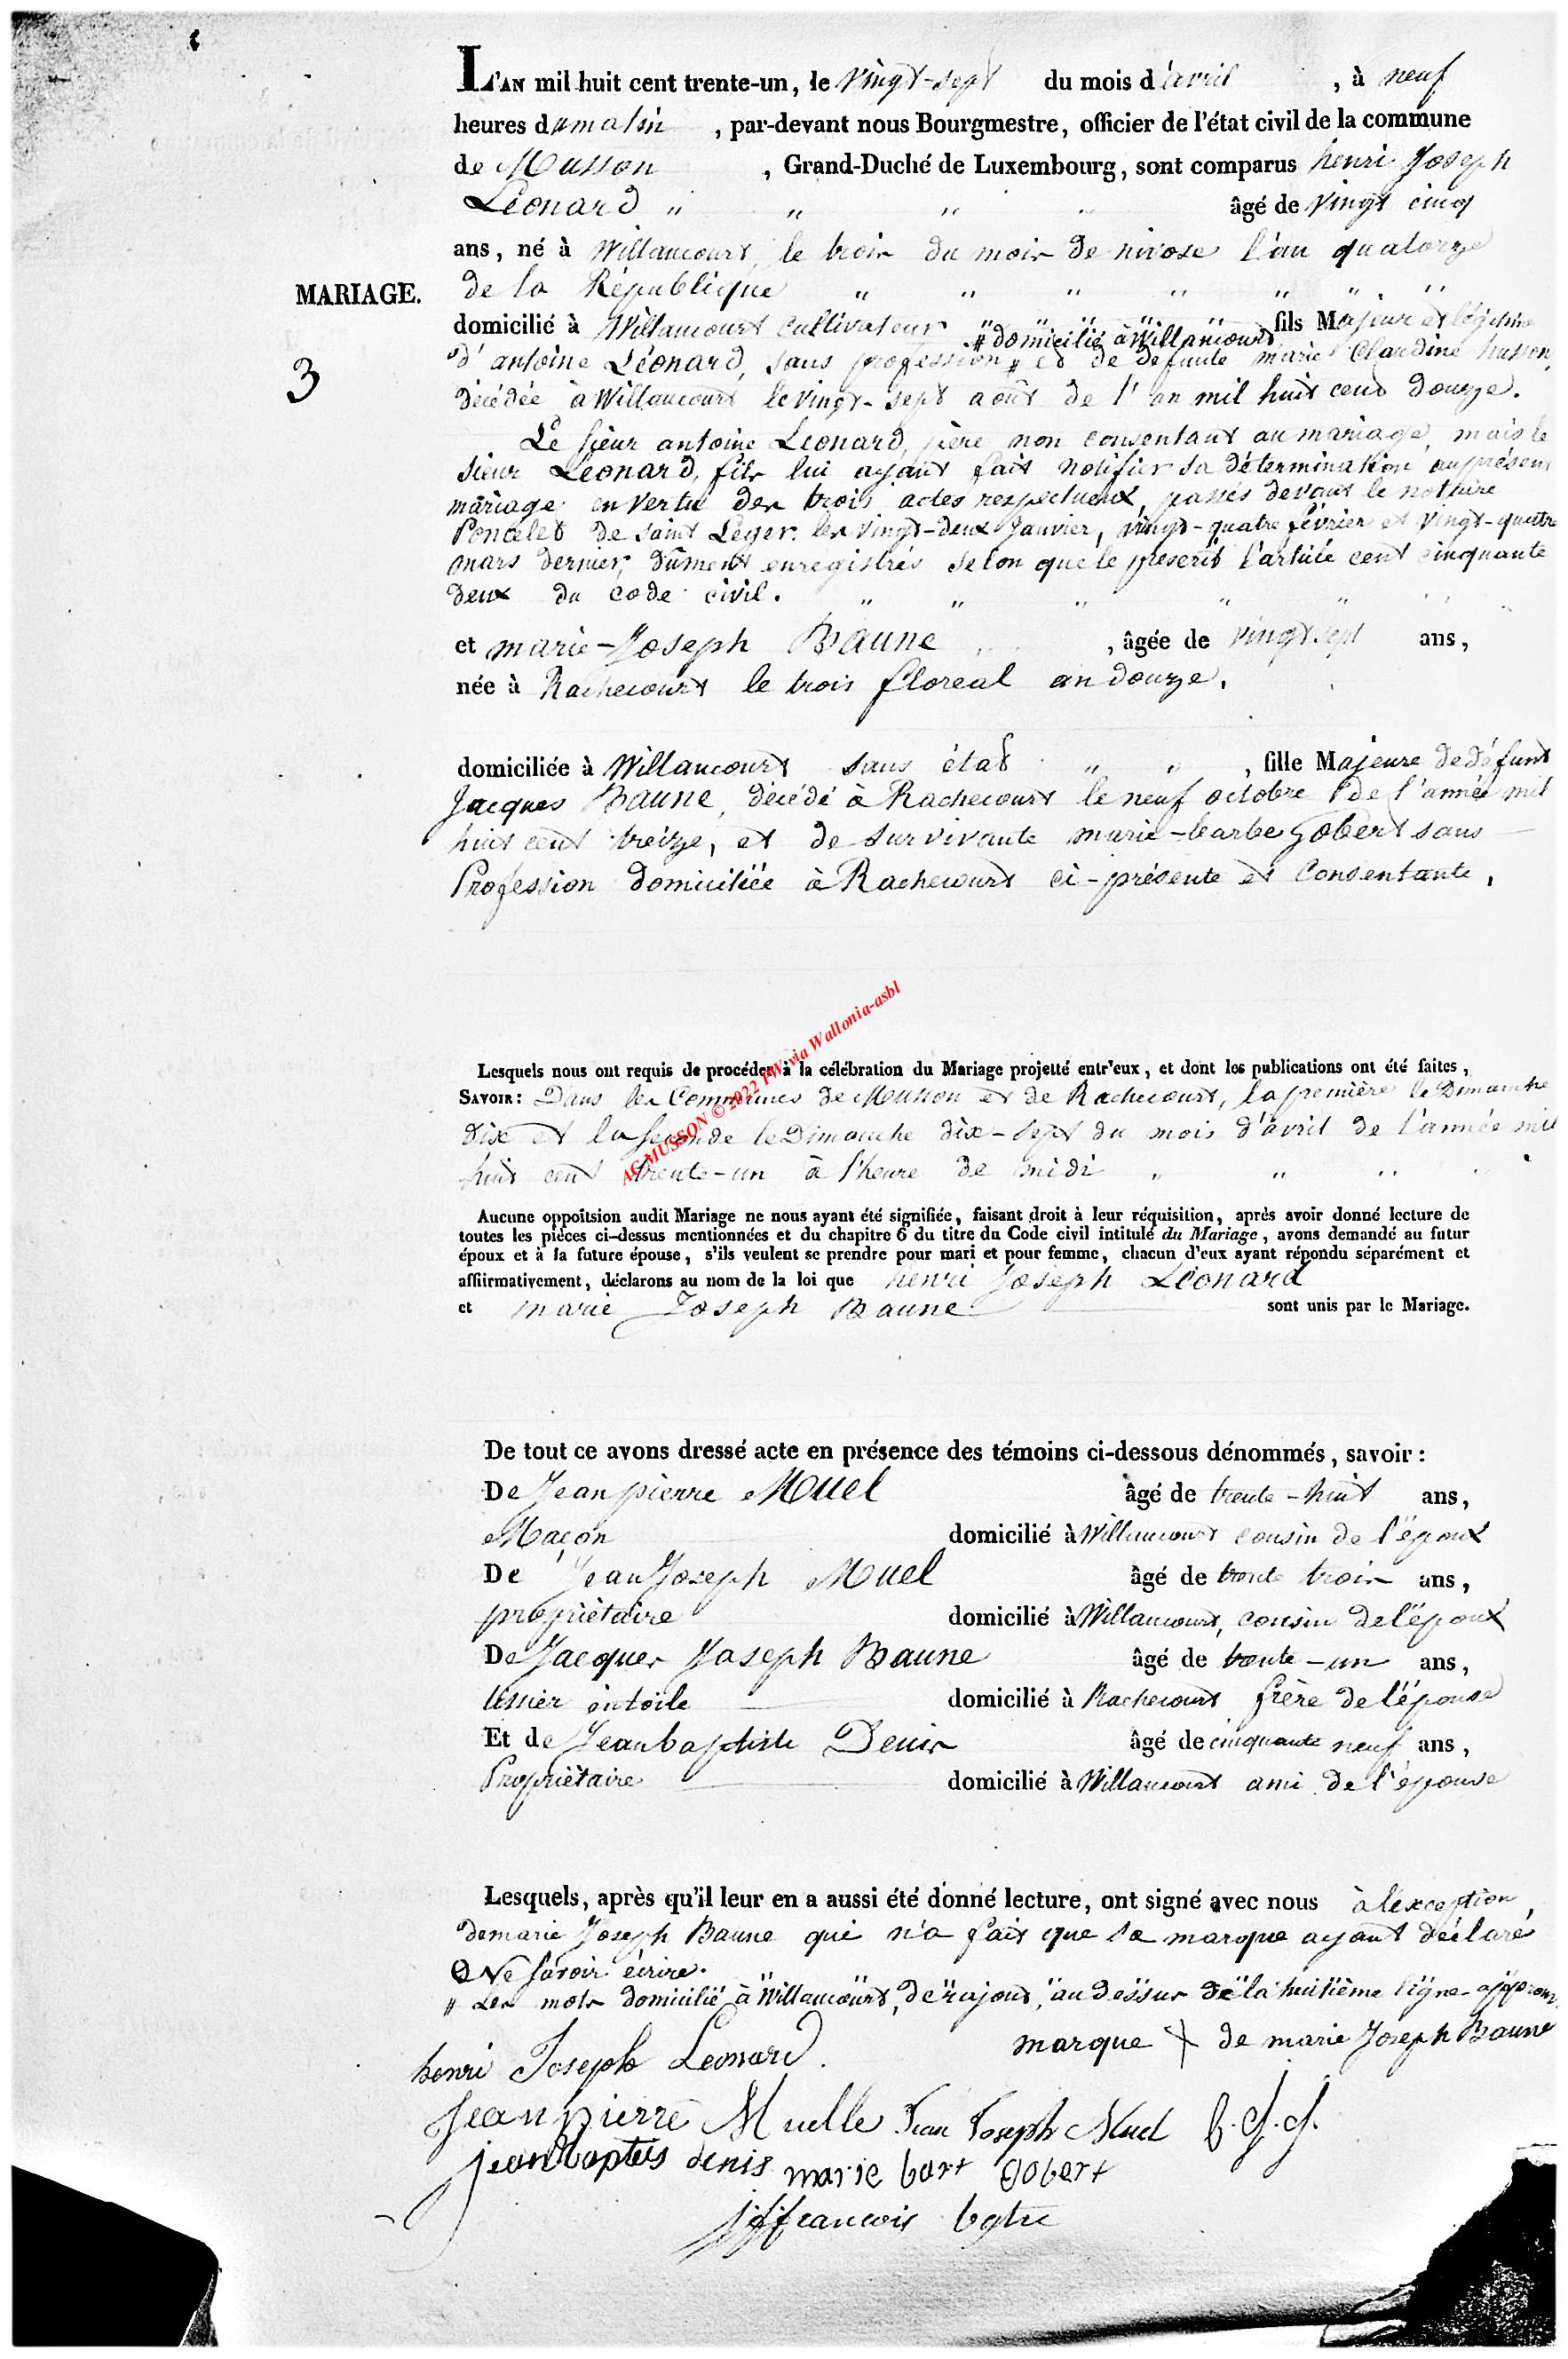 L'AN mil huit cent trente-un, le vingt-sept du mois d'avril , à neuf
heures du matin , par-devant nous Bourgmestre, officier de l'état civil de la commune
de Musson , Grand-Duché de Luxembourg, sont comparus henri Joseph
Léonard " " " " âgé de vingt cinq
ans, né à Willancourt, le trois du mois de nivose l'an quatorze
MARIAGE. de la République " " " " " " "
domicilié à Willancourt cultivateur " " " " " fils Majeur et légitime
# domicilié à Willancourt
3 d'antoine Léonard, sans profession # et de defunte marie Claudine husson,
décédée à Willancourt le vingt-sept août de l'an mil huit cent douze.
Le sieur antoine Léonard, père non consentant au mariage, mais le
sieur Léonard, fils lui ayant fait notifier sa détermination au présent
mariage en vertu des trois actes respectueux, passés devant le notaire
Poncelet de saint Léger les vingt-deux Janvier, vingt-quatre février et vingt-quatre
mars dernier, dûment enregistrés selon que le prescrit l'article cent cinquante
deux du code civil. " " " " " "
et marie-Joseph Baune , âgée de vingt sept ans,
née à Rachecourt le trois floreal an douze.
domiciliée à Willancourt sans état " " , fille Majeure de défunt
Jacques Baune, décédé à Rachecourt le neuf octobre de l'année mil
huit cent treize, et de survivante marie-barbe Gobert sans
Profession domiciliée à Rachecourt ci-présente et Consentante,
AC-MUSSON © 2022 PW via Wallonia-asbl
Lesquels nous ont requis de procéder à la célébration du Mariage projetté entr'eux, et dont les publications ont été faites,
SAVOIR: Dans les Communes de Musson et de Rachecourt, la première le Dimanche
dix et la seconde le Dimanche dix-sept du mois d'avril de l'année mil
huit cent trente-un à l'heure de midi " " " "
Aucune oppoitsion audit Mariage ne nous ayant été signifiée, faisant droit à leur réquisition, après avoir donné lecture de
toutes les pièces ci-dessus mentionnées et du chapitre 6 du titre du Code civil intitulé du Mariage, avons demandé au futur
époux et à la future épouse, s'ils veulent se prendre pour mari et pour femme, chacun d'eux ayant répondu séparément et
affiirmativement, déclarons au nom de la loi que henri Joseph Léonard
et marie Joseph Baune sont unis par le Mariage.
De tout ce avons dressé acte en présence des témoins ci-dessous dénommés, savoir:
De Jean pierre Muel âgé de trente-huit ans,
Maçon domicilié à Willancourt cousin de l'époux
De Jean Joseph Muel âgé de trente trois ans,
propriétaire domicilié à Willancourt, cousin de l'époux
De Jacques Joseph Baune âgé de trente-un ans,
tissier en toile domicilié à Rachecourt frère de l'épouse
Et de Jean baptiste Denis âgé de cinquante neuf ans,
Propriétaire domicilié à Willancourt ami de l'épouse
Lesquels, après qu'il leur en a aussi été donné lecture, ont signé avec nous à l'exception
de marie Joseph Baune qui n'a fait que sa marque ayant déclaré
Ne savoir écrire.
# Les mots domicilié à Willancourt, de rajout, au dessus de la huitième ligne approuvé
henri Joseph Leonard. marque + de marie Joseph Baune
Jean pierre Muelle Jean Joseph Muel b.J.J.
jean baptis denis marie bart gobert
francois bgtre